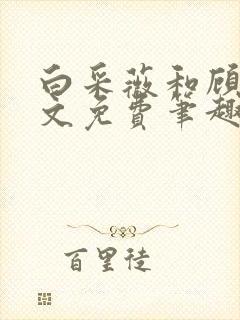 白采薇和顾
文免费笔趣
百里徒